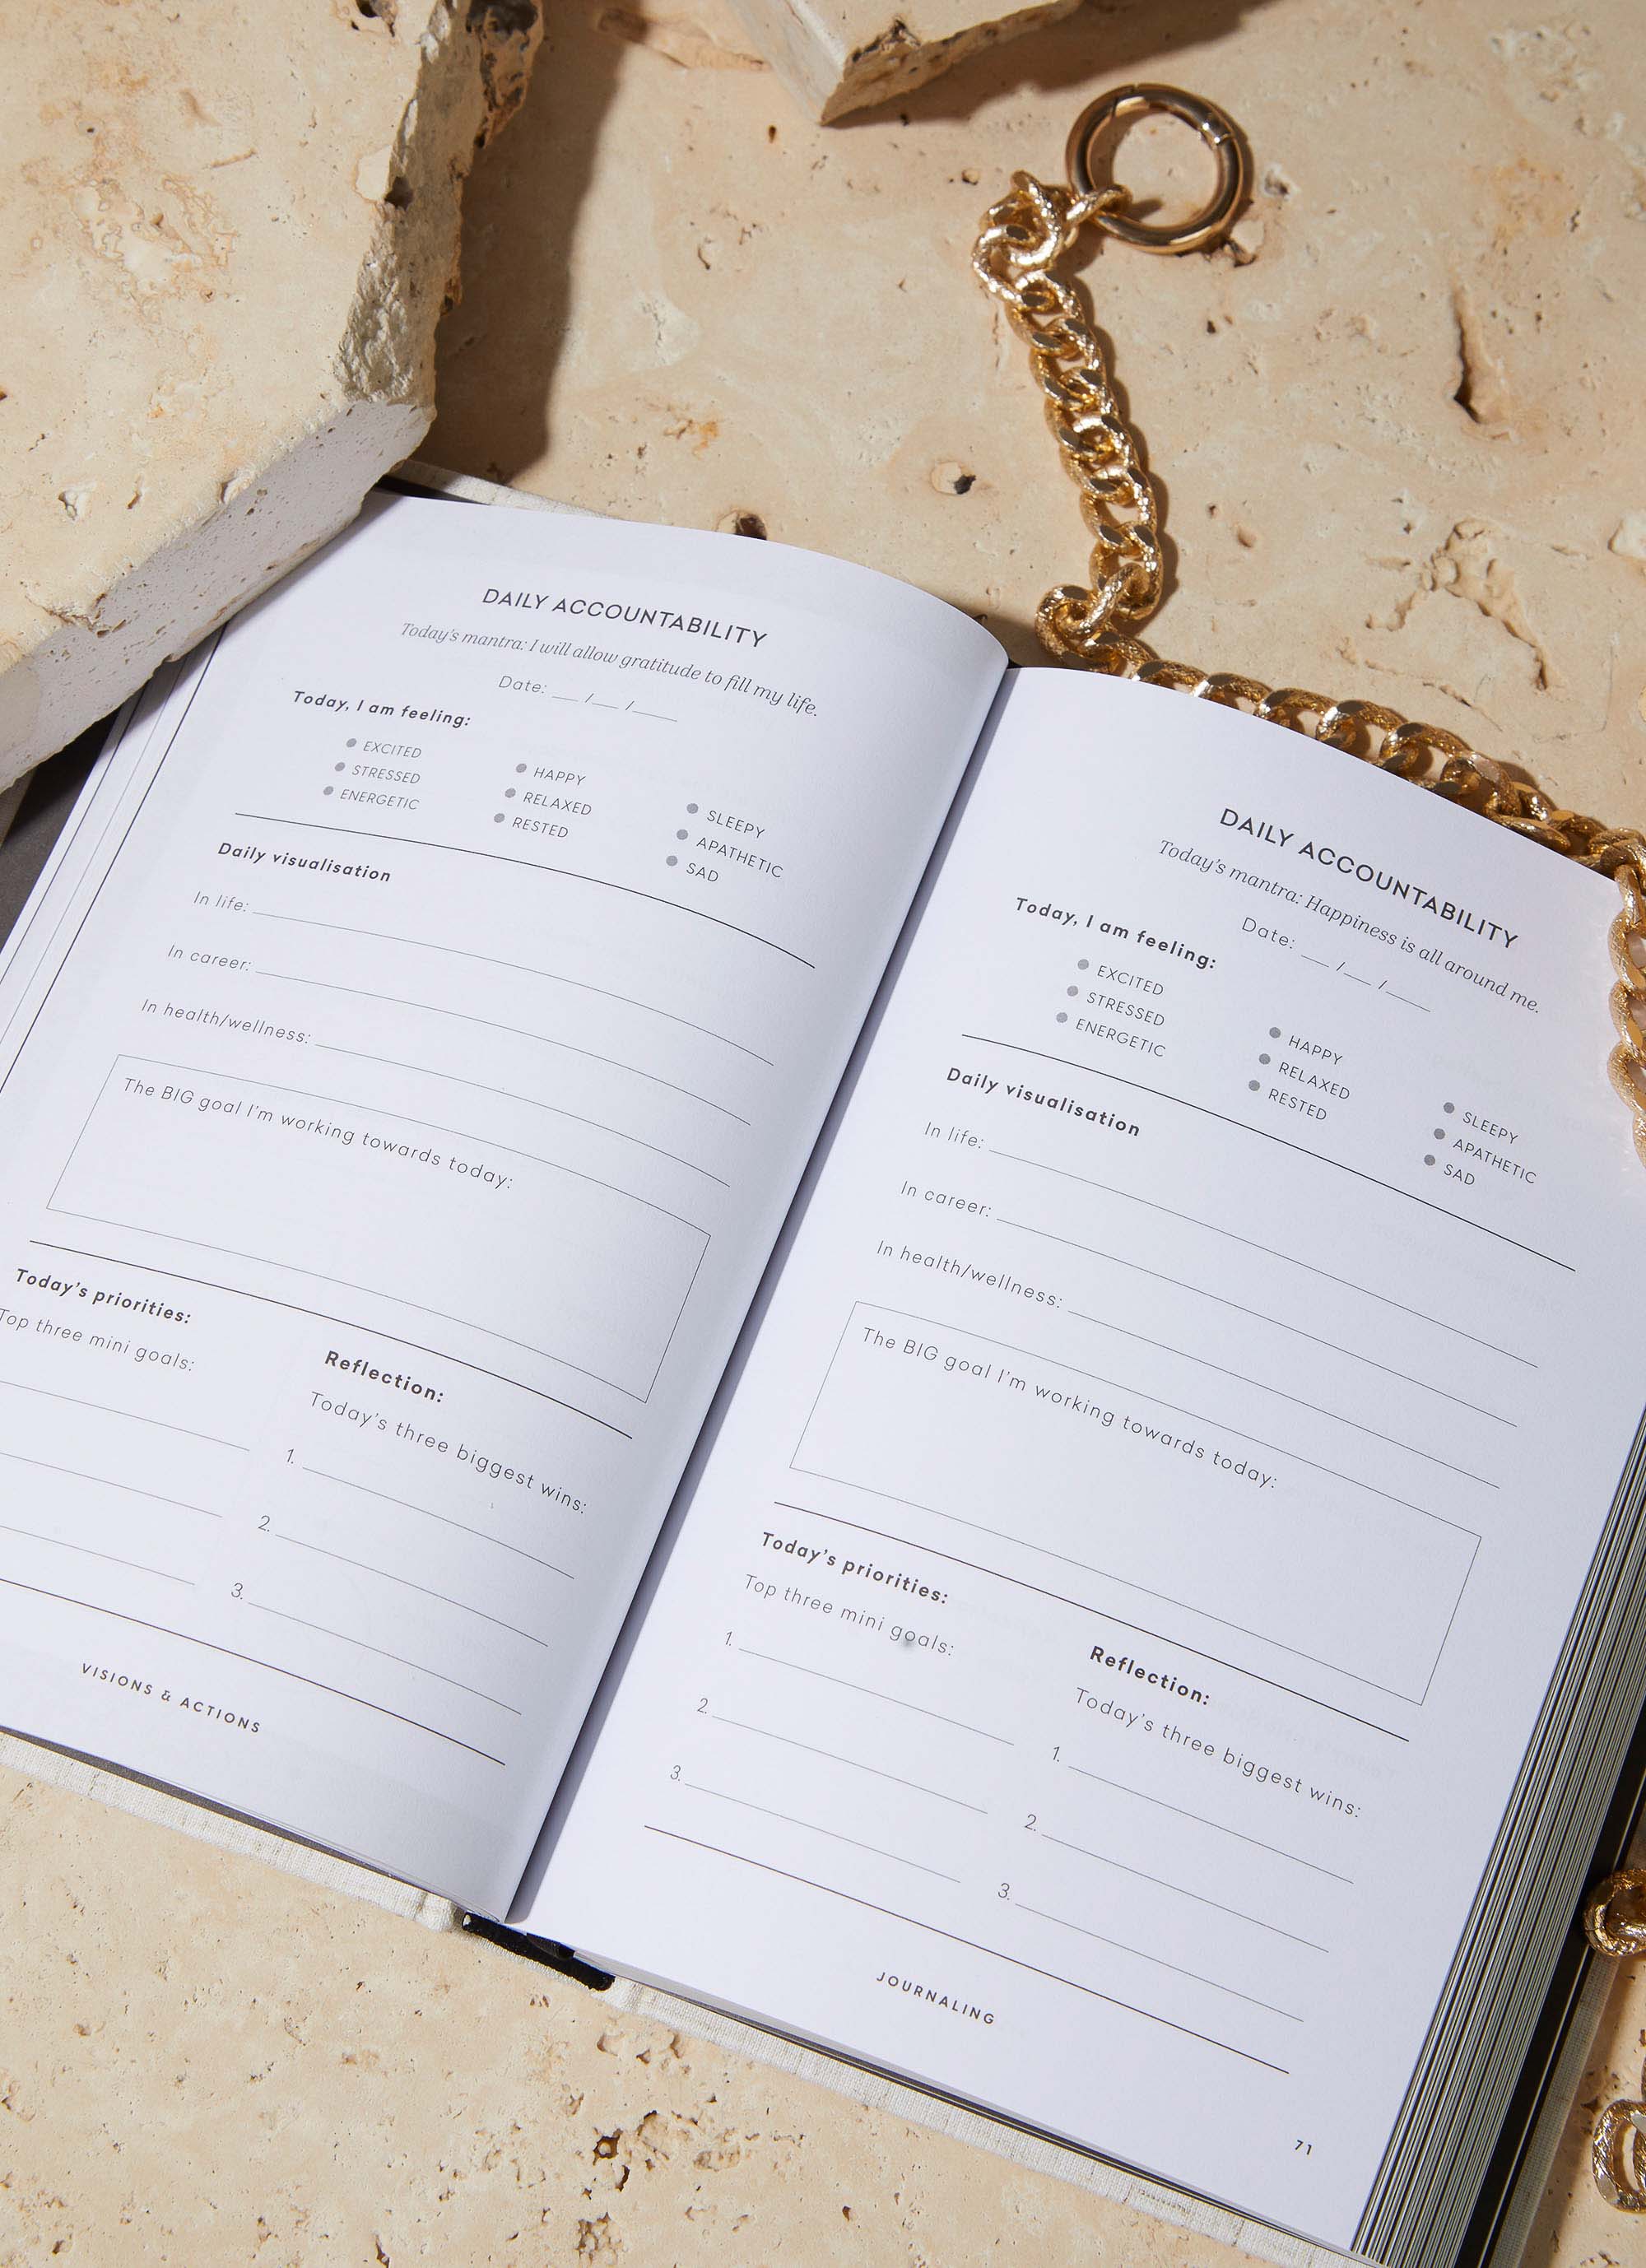 DAILY ACCOUNTABILITY
Today's mantra: I will allow gratitude to fill my life.
Date: __ /__ /___
Today, I am feeling:
EXCITED
STRESSED
ENERGETIC
HAPPY
RELAXED
RESTED
SLEEPY
APATHETIC
SAD
Daily visualisation
In life:
In career:
In health/wellness:
The BIG goal I'm working towards today:
Today's priorities:
Top three mini goals:
Reflection:
Today's three biggest wins:
1.
2.
3.
VISIONS & ACTIONS
DAILY ACCOUNTABILITY
Today's mantra: Happiness is all around me.
Date: __ /__ /___
Today, I am feeling:
EXCITED
STRESSED
ENERGETIC
HAPPY
RELAXED
RESTED
SLEEPY
APATHETIC
SAD
Daily visualisation
In life:
In career:
In health/wellness:
The BIG goal I'm working towards today:
Today's priorities:
Top three mini goals:
1.
2.
3.
Reflection:
Today's three biggest wins:
1.
2.
3.
JOURNALING
71